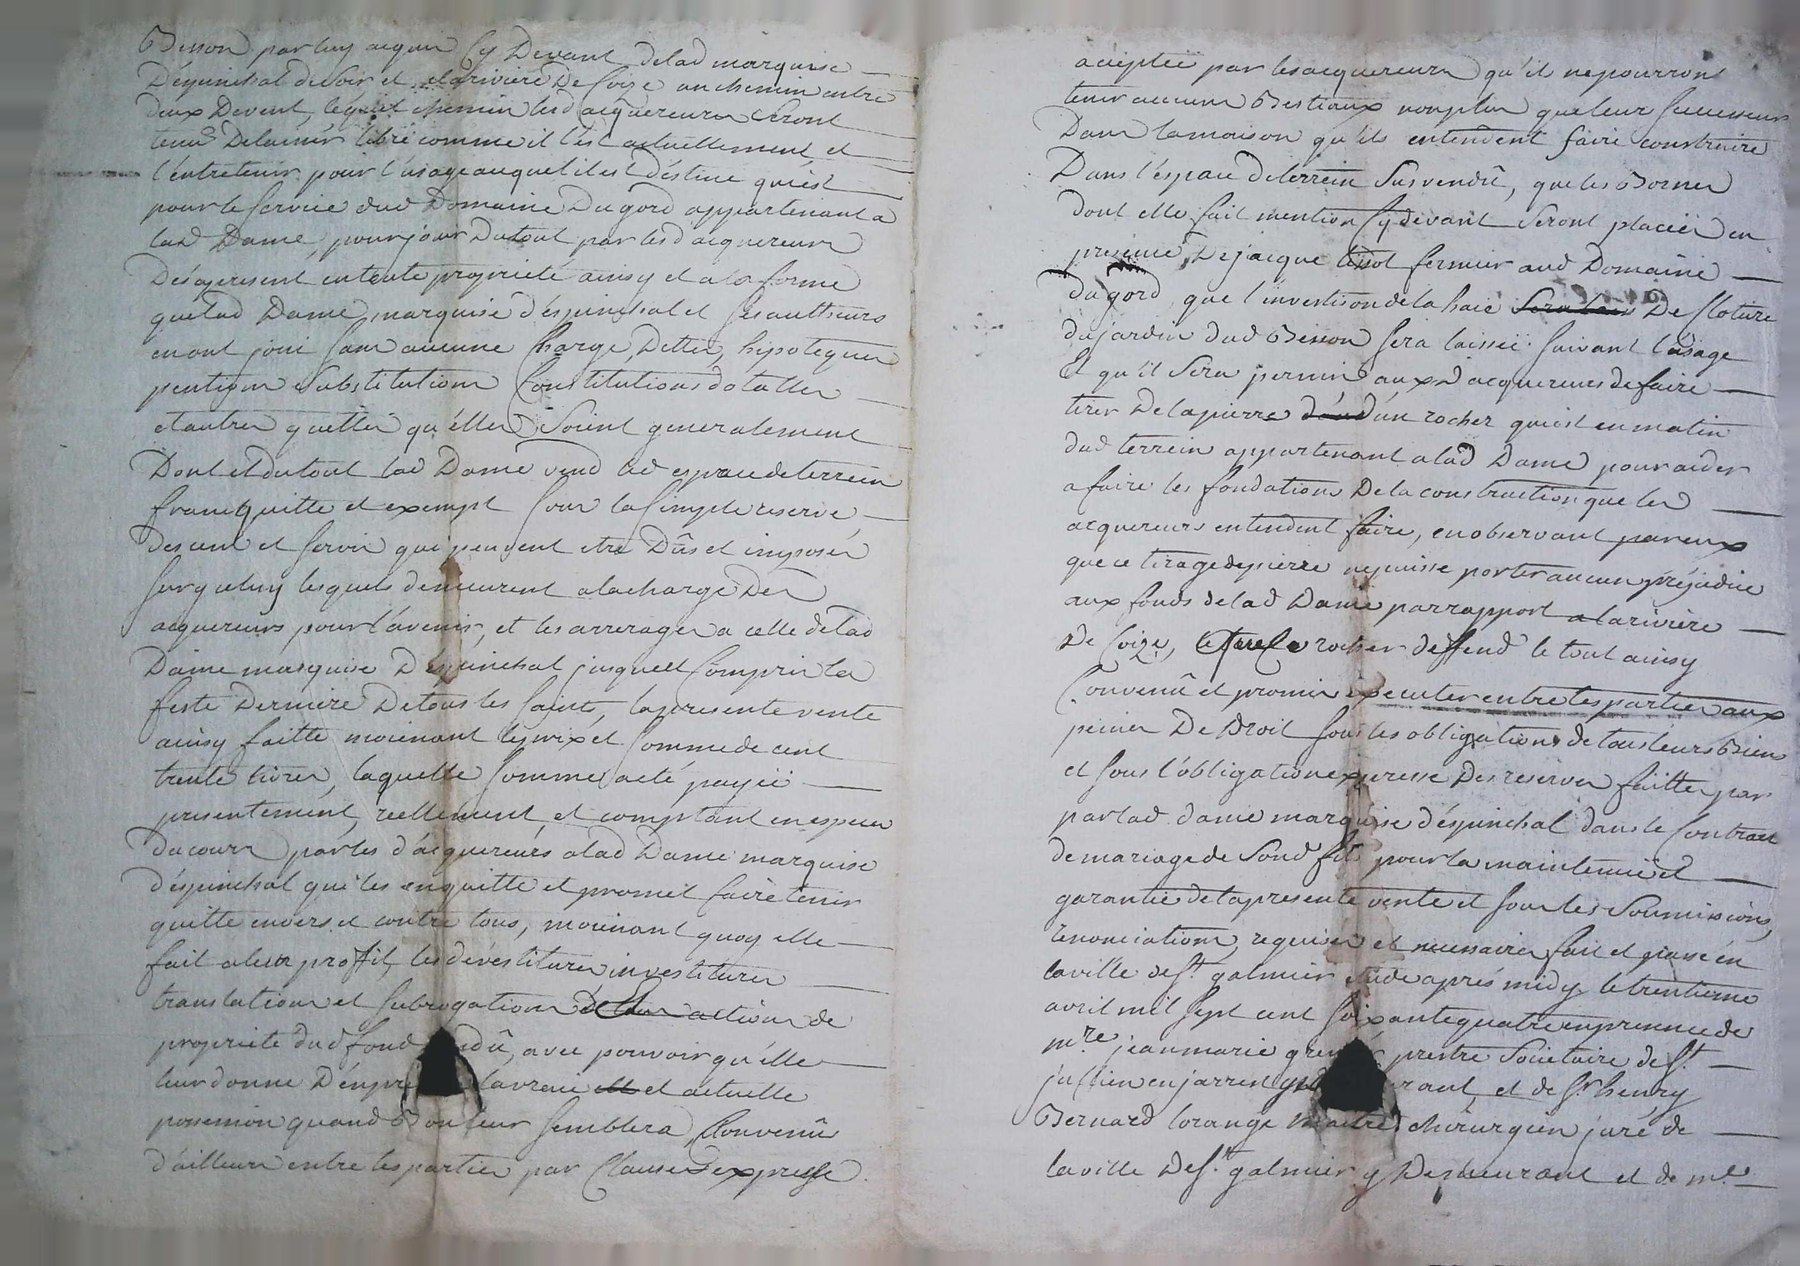 Besson par luy acquis cy devant delad marquise
D'espinchal de soir et la riviere De Coize un chemin entre
deux Devent, lequel chemin lesd acquereurs seront
tenus Delaisser libre comme il l'est actuellement et
l'entretenir pour l'usage auquel il est déstiné qui est
pour le service dud Domaine Du gord appartenant a
lad Dame, pour jouir Dutout par lesd acquereurs
Des a present en toute proprieté ainsy et a la forme
que lad Dame marquise d'espinchal et ses autheurs
en ont joui sans aucune charge, Dettes, hipoteques
pentions substitutions Constitutions dotalles
et autres quelles qu'elles soient generalement
Dont et du tout lad Dame vend led espace de terrein
franc quitte et exempt sous la simple reserve
des cens et servis qui peuvent etre Dûs et imposés
sur yceluy lesquels demeurent a la charge Des
acquereurs pour l'avenir, et les arrerages a celle de lad
Dame marquise D'espinchal jusques et Compris la
feste Derniere De tous les saints, la presente vente
ainsy faitte moienant le prix et somme de cent
trente livres, laquelle somme a eté payée
presentement, reellement et comptant en especes
Du cours par les d'acquereurs a lad Dame marquise
d'espinchal qui les en quitte et promet faire tenir
quitte envers et contre tous, moienant quoy elle
fait a leur proffit, les dévestitures investitures
translations et subrogations actions de
proprieté dud fond dû, avec pouvoir qu'elle
leur donne D'en la vraie et actuelle
possession quand Bon leur semblera, Convenû
d'ailleurs entre les parties par Clause expresse
acceptée par les acquereurs qu'ils ne pourront
tenir aucuns Bestiaux non plus que leurs successeurs
Dans la maison qu'ils entendent faire construire
Dans l'éspace de terrein Susvendû, que les Bornes
dont elle fait mention cy devant seront placées en
presence De jacque fermier aud Domaine
Du gord, que l'investison de la haie De Cloture
du jardin dud Besson sera laissée suivant l'usage
Et qu'il sera permis auxd acquereurs de faire
tirer De la pierre d'un rocher qui est en matin
dud terrein appartenant a lad Dame pour aider
a faire les fondations De la construction que les
acquereurs entendent faire, en observant par eux
que ce tirage de pierre ne puisse porter aucun préjudice
aux fonds de lad Dame par rapport a la riviere
De Coize, rocher deffend le tout ainsy
Convenû et promis executer entre les parties aux
peines De Droit sous les obligations de tous leurs Biens
et sous l'obligation expresse Des reserves faittes par
par lad dame marquise d'éspinchal dans le Contract
de mariage de Sond fils pour la maintenüe et
garantie de la presente vente et sous les Soumissions,
renonciations, requises et necessaires fait et passé en
la ville de St galmier étude aprés midy le trentieme
avril mil sept cent soixante quatre en presence de
mre jean marie prestre Societaire de St
jullien en jarrest et de Sr henry
Bernard lorange maitre chirurgien juré de
la ville De St galmier y Demeurant et de me